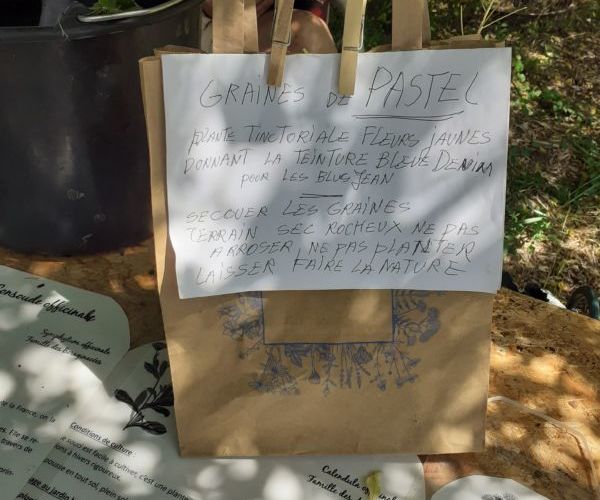 GRAINES DE PASTEL
PLANTE TINCTORIALE FLEURS JAUNES
DONNANT LA TEINTURE BLEUE DENIM
POUR LES BLUS JEAN
SECOUER LES GRAINES
TERRAIN SEC ROCHEUX NE PAS
ARROSER, NE PAS PLANTER
LAISSER FAIRE LA NATURE
Consoude officinale
Symphytum officinale
Famille des
de la France, on la
Elle se re-
travers de
Conditions de culture :
facile à cultiver, c'est une plante
à hivers rigoureux.
pousse en tout sol, plein
au jardin
Calendula
Famille des